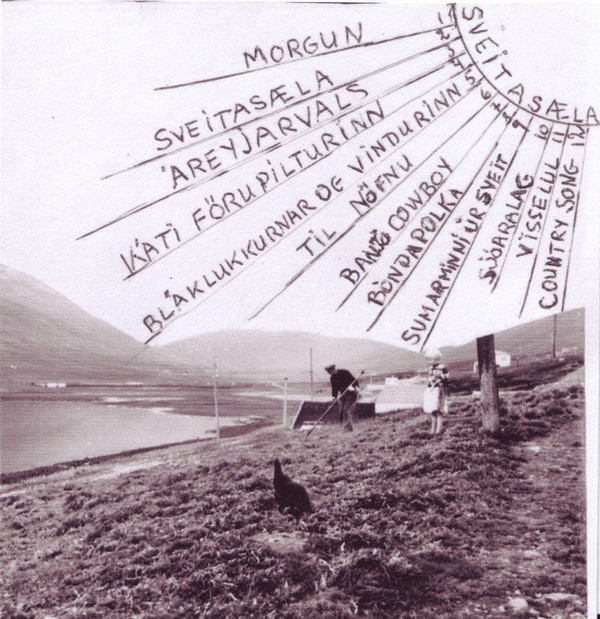 SVEITASÆLA
1 MORGUN
2 SVEITASÆLA
3 ÁREYJARVALS
4 KÁTI FÖRUPILTURINN
5 BLÁKLUKKURNAR OG VINDURINN
6 TIL NÖFNU
7 BANJÓ COWBOY
8 BÓNDAPOLKA
9 SUMARMINNI ÚR SVEIT
10 SJÓARALAG
11 VISSELLUL
12 COUNTRY SONG